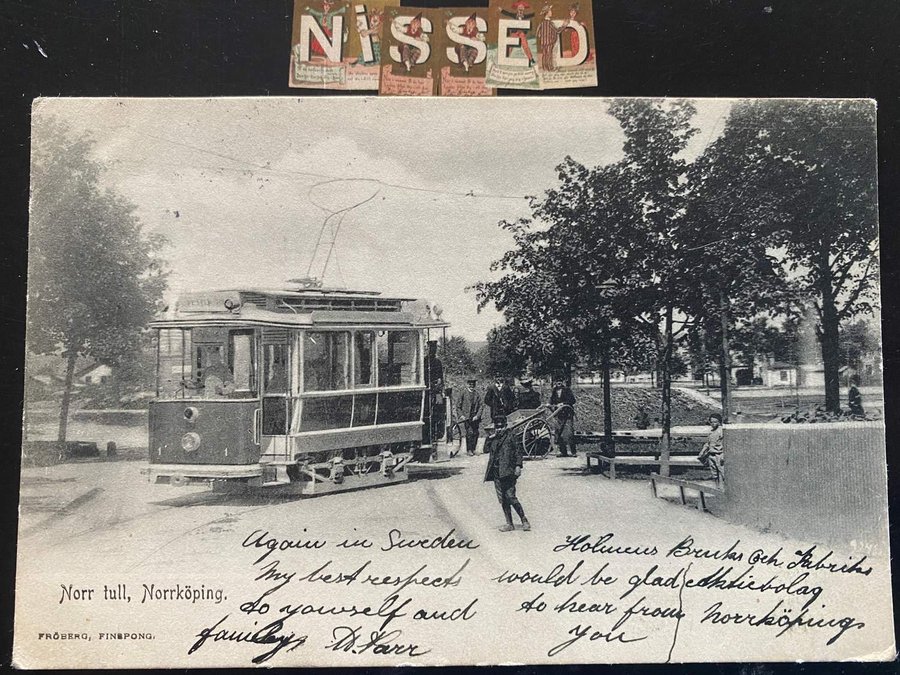 NiSSED
Norr tull, Norrköping.
FRÖBERG, FINSPONG.
Again in Sweden
My best respects
to yourself and
familys
would be glad
to hear from
You
Holmens Bruks och Fabriks
Aktiebolag
Norrköping